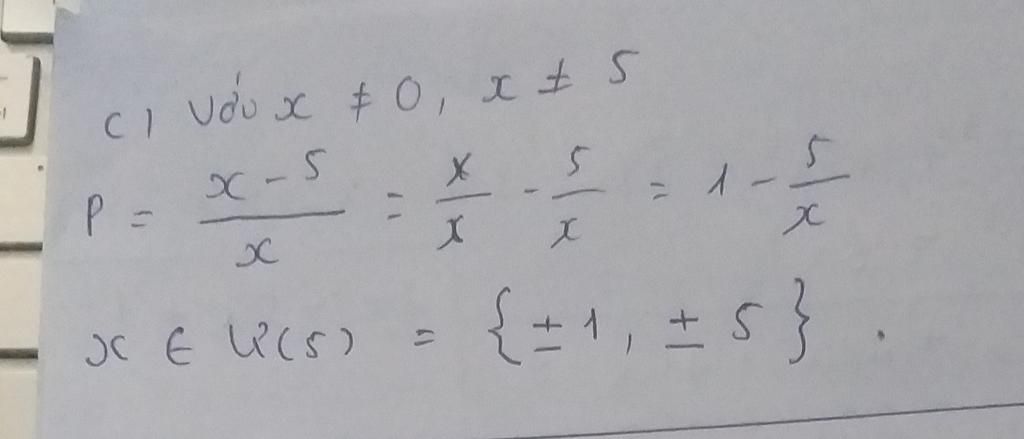 c) Với x ≠ 0, x ≠ 5
P = \frac{x - 5}{x} = \frac{x}{x} - \frac{5}{x} = 1 - \frac{5}{x}
x ∈ Ư(5) = {±1, ±5}.